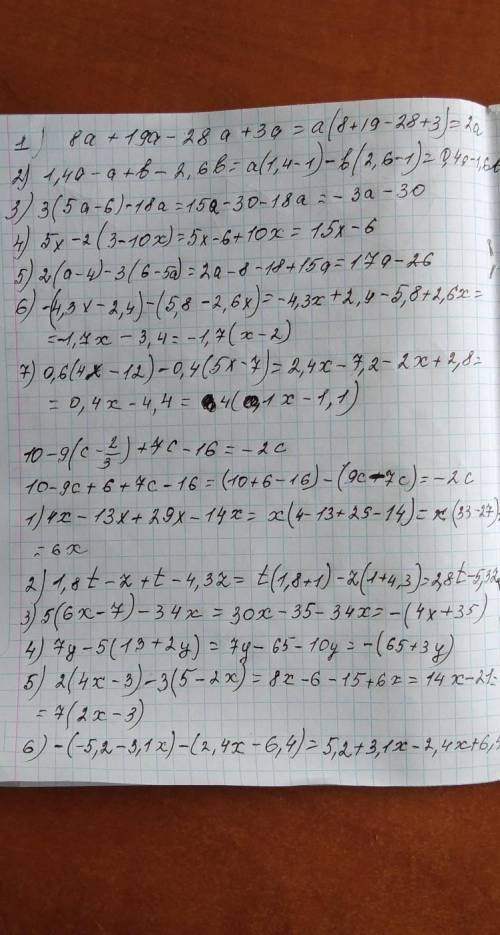 1) 8a + 19a - 28a + 3a = a(8+19-28+3) = 2a
2) 1,4a - a + b - 2,6b = a(1,4-1) - b(2,6-1) = 0,4a-1,6b
3) 3(5a-6)-18a=15a-30-18a = -3a-30
4) 5x-2(3-10x)=5x-6+10x = 15x-6
5) 2(a-4)-3(6-5a)=2a-8-18+15a=17a-26
6) -(4,3x-2,4)-(5,8-2,6x)=-4,3x+2,4-5,8+2,6x=
=-1,7x-3,4=-1,7(x-2)
7) 0,6(4x-12)-0,4(5x-7)=2,4x-7,2-2x+2,8=
= 0,4x-4,4 = 4(0,1x-1,1)
10-9(c-2/3)+7c-16=-2c
10-9c+6+7c-16=(10+6-16)-(9c-7c)=-2c
1) 4x-13x+29x-14x= x(4-13+29-14)=x(33-27)=
=6x
2) 1,8t-z+t-4,3z= t(1,8+1)-z(1+4,3)=2,8t-5,3z
3) 5(6x-7)-34x = 30x-35-34x=-(4x+35)
4) 7y-5(13+2y)=7y-65-10y=-(65+3y)
5) 2(4x-3)-3(5-2x)=8x-6-15+6x=14x-21=
=7(2x-3)
6) -(-5,2-3,1x)-(2,4x-6,4)=5,2+3,1x-2,4x+6,4